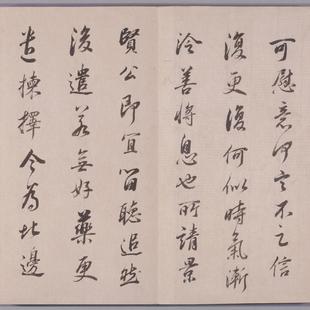 可慰意何言不之信
復更復何似時氣漸
冷善將息也所請景
賢公即宜留聽追狀
後遣若無好藥更
造揀擇今為北邊